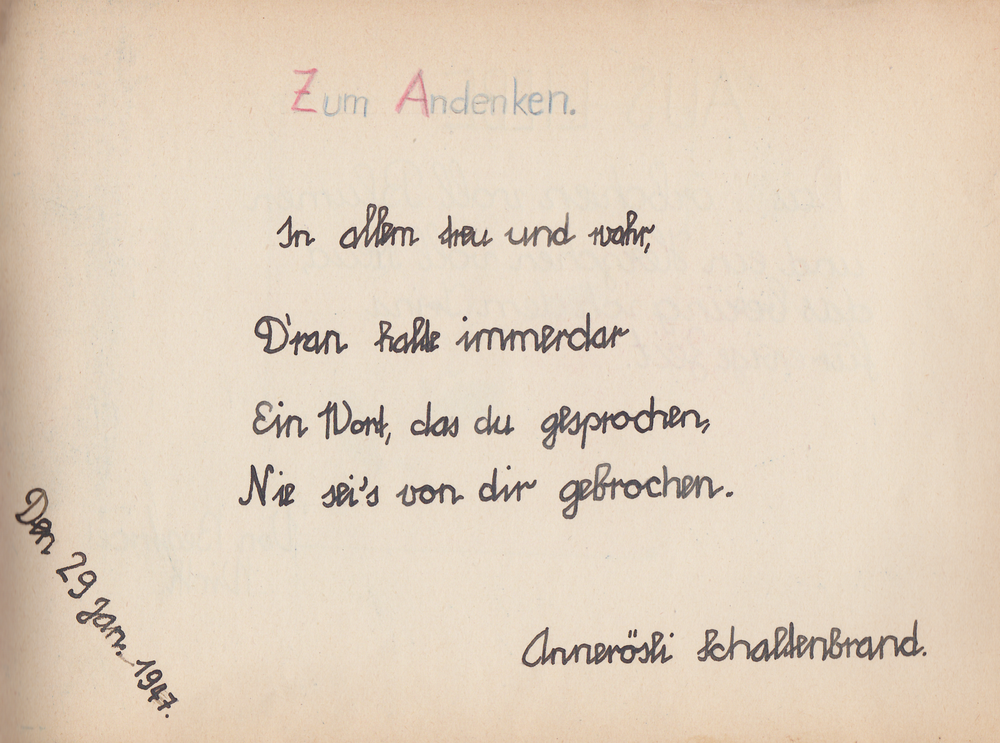 Zum Andenken.
In allem treu und wahr,
D'ran halte immerdar
Ein Wort, das du gesprochen,
Nie sei's von dir gebrochen.
Den 29 Jan. 1947.
Annerösli Schaltenbrand.